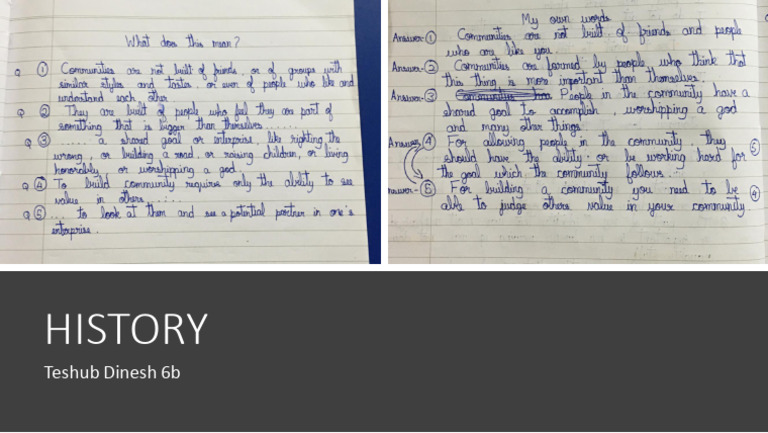 What does this mean?
Q ① Communities are not built of friends, or of groups with
similar styles and tastes, or even of people who like and
understand each other.
Q ② They are built of people who feel they are part of
something that is bigger than themselves ......
Q ③ ...... a shared goal or enterprise, like righting the
wrong, or building a road, or raising children, or living
honorably, or worshipping a god.
Q ④ To build community requires only the ability to see
value in others ......
Q ⑤ ... to look at them and see a potential partner in one's
enterprise.
My own words
Answer-① Communities are not built of friends and people
who are like you.
Answer-② Communities are formed by people who think that
this thing is more important than themselves.
Answer-③ People in the community have a
shared goal to accomplish, worshipping a god
and many other things.
Answer ④ For allowing people in the community, they
should have the ability or be working hard for ⑤
the goal which the community follows.
Answer-⑤ For building a community you need to be
able to judge others value in your community ④
HISTORY
Teshub Dinesh 6b